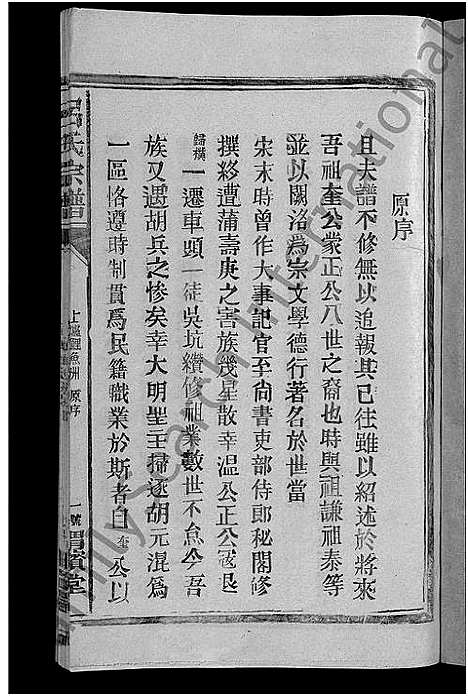 原序
且夫譜不修無以追報其已往雖以紹述於將來
吾祖奎公蒙正公八世之裔也時與祖謙祖泰等
並以關洛為宗文學德行著名於世當
宋末時曾作大事記官至尚書吏部侍郎秘閣修
撰後遭蒲壽庚之害族幾星散幸溫公正公寇
歸橫一遷車頭一徙吳坑纘修祖業數世不惫今吾
族又遇胡兵之慘矣幸大明聖主掃逐胡元混為
一區恪遵時制貫為民籍職業於斯者自奎公以
呂氏宗譜
鯉魚洲 原序
一號
渭濱堂